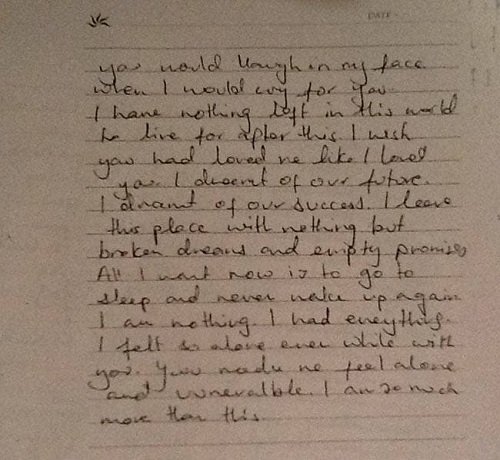 DATE
you would laugh in my face
when I would cry for you
I have nothing left in this world
to live for after this. I wish
you had loved me like I loved
you. I dreamt of our future.
I dreamt of our success. I leave
this place with nothing but
broken dreams and empty promises.
All I want now is to go to
sleep and never wake up again
I am nothing. I had everything.
I felt so alone even while with
you. You made me feel alone
and vunerable. I am so much
more than this.